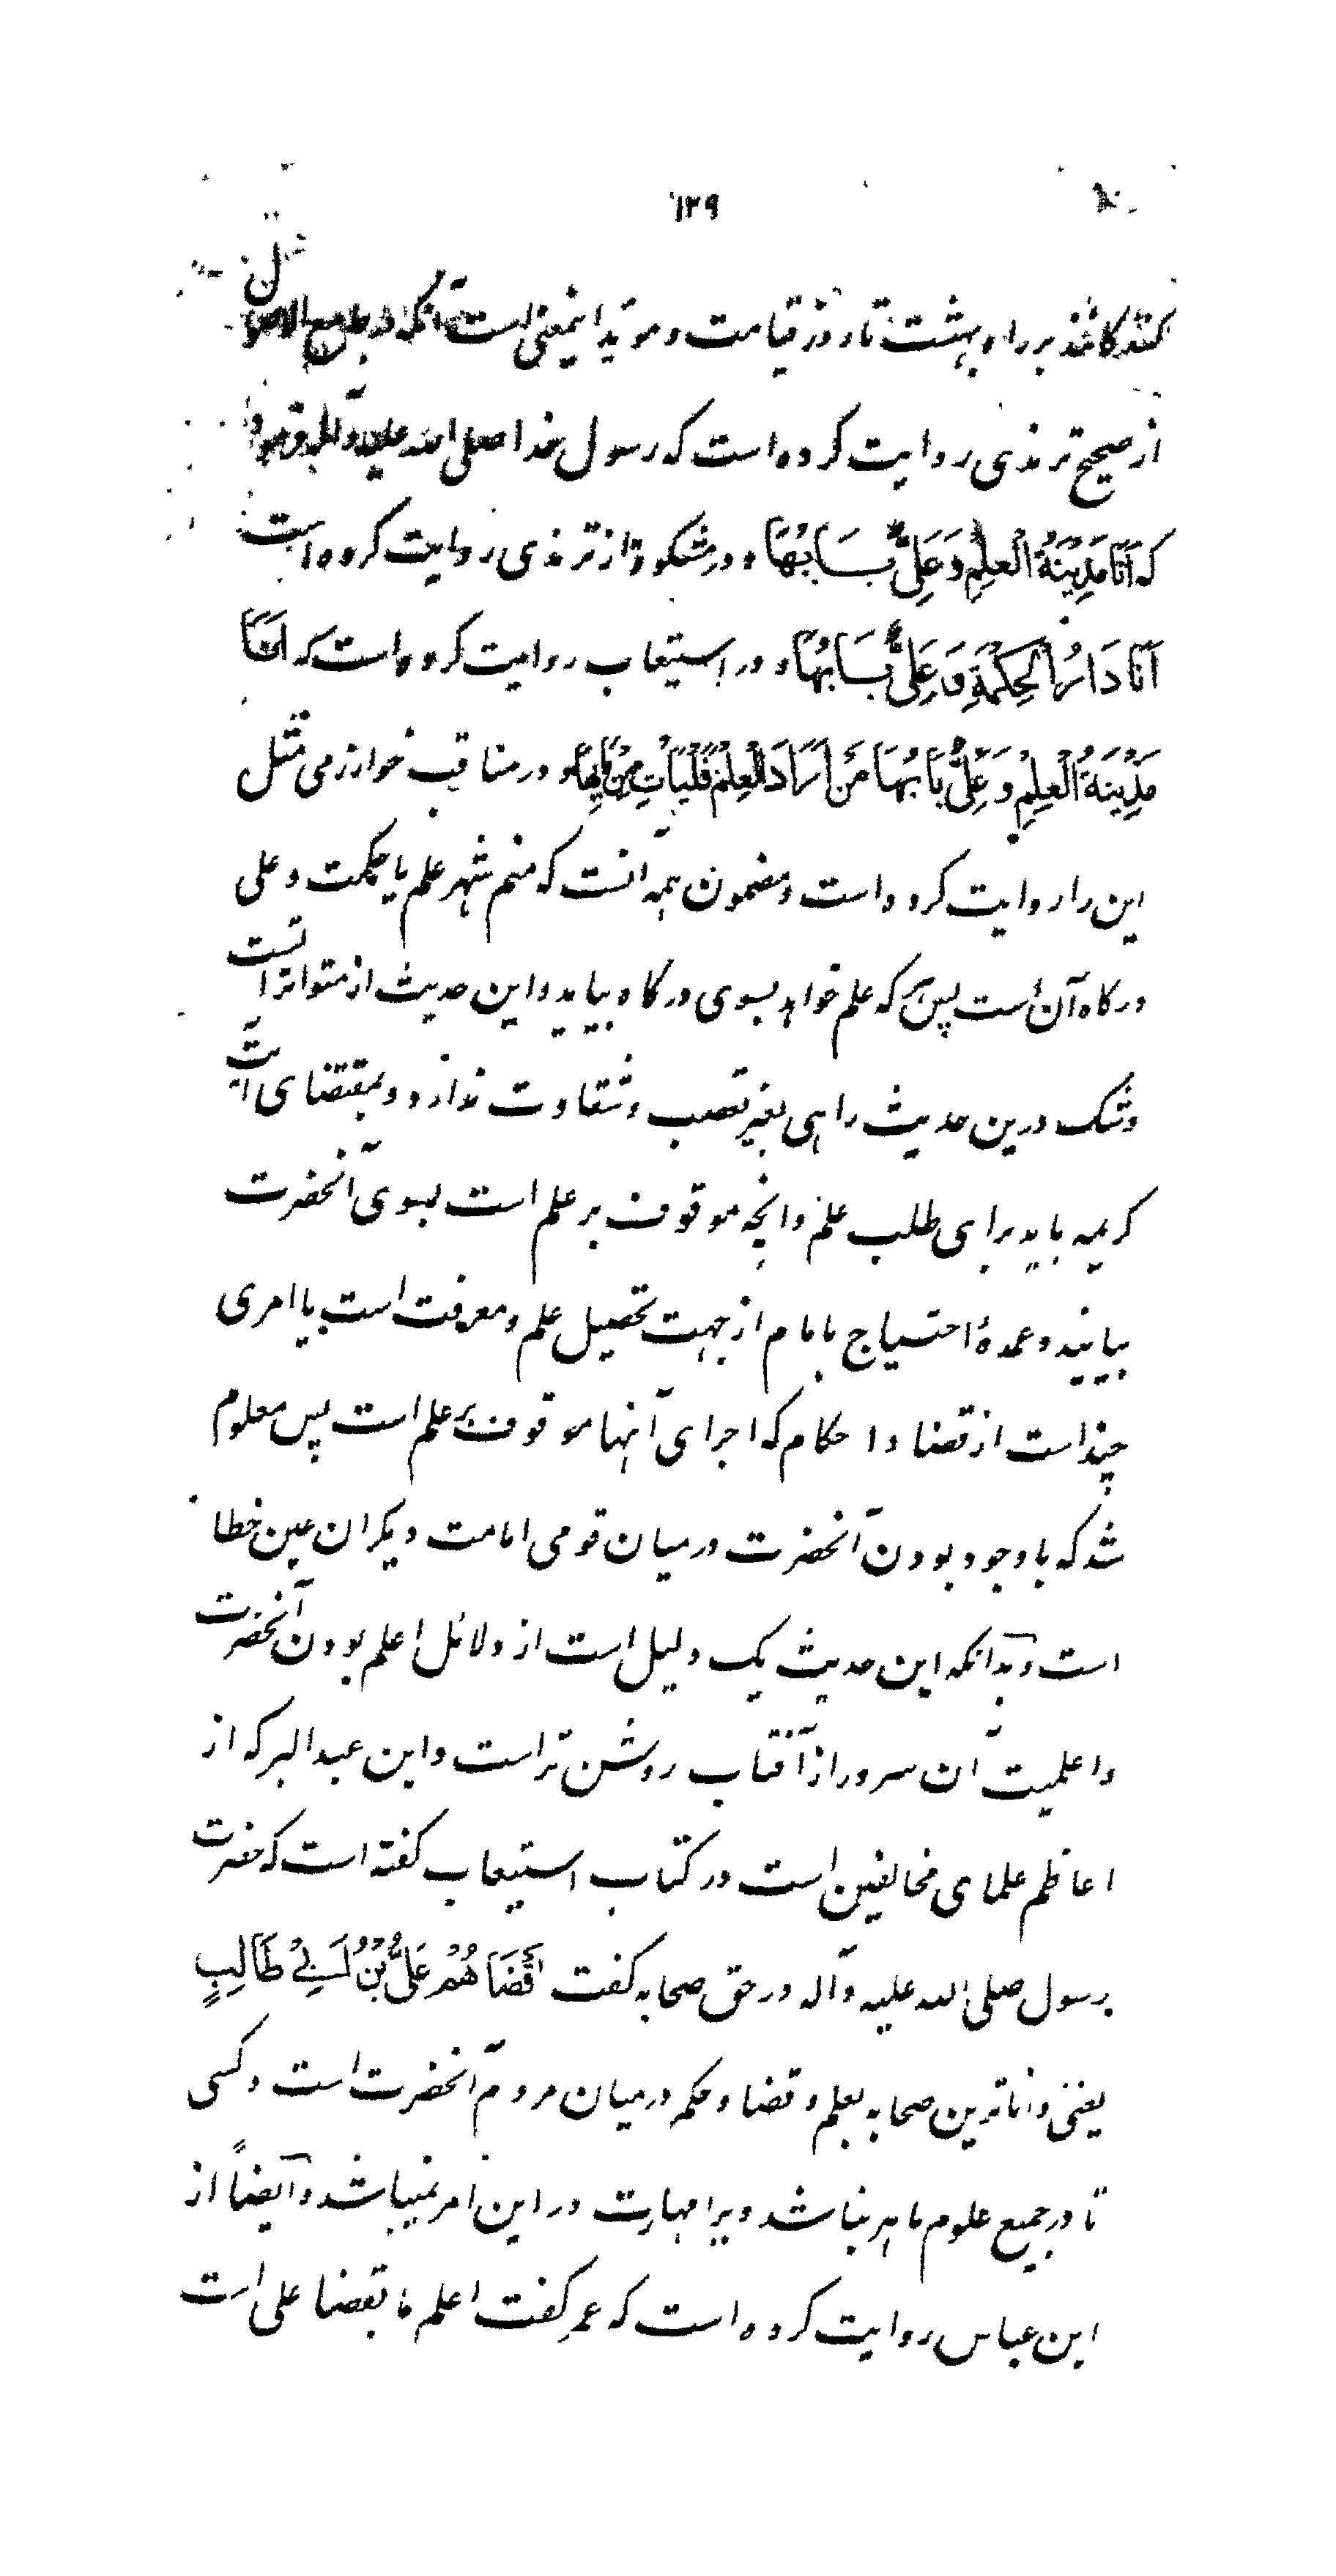 ۱۲۹
کنند کاغذ بر راه بهشت تا روز قیامت و موید اینمعنی است آنکه در جامع الاصول
از صحیح ترمذی روایت کرده است که رسول خدا صلی الله علیه وآله فرمود
که اَنَا مَدِیْنَةُ الْعِلْمِ وَعَلِیٌّ بَابُهَا و در مشکوة از ترمذی روایت کرده است
اَنَا دَارُ الْحِکْمَةِ وَ عَلِیٌّ بَابُهَا و در استیعاب روایت کرده است که اَنَا
مَدِیْنَةُ الْعِلْمِ وَ عَلِیٌّ بَابُهَا مَنْ اَرَادَ الْعِلْمَ فَلْیَأْتِ مِنْ بَابِهَا و در مناقب خوارزمی مثل
این را روایت کرده است و مضمون همه آنست که منم شهر علم یا حکمت و علی
درکاه آن است پس هر که علم خواهد بسوی درکاه بیاید و این حدیث از متواتراتست
و شک درین حدیث راهی بغیر تعصب و شقاوت ندارد و بمقتضای آیت
کریمه باید برای طلب علم و انچه موقوف بر علم است بسوی آنحضرت
بیایند و عمدهٔ احتیاج بامام از جهت تحصیل علم و معرفت است یا امری
چند است از قضا و احکام که اجرای آنها موقوف بر علم است پس معلوم
شد که باوجود بودن آنحضرت درمیان قومی امامت دیکران عین خطا
است و بدانکه این حدیث یک دلیل است از دلائل اعلم بودن آنحضرت
و اعلمیت آن سرور از آفتاب روشن تر است و ابن عبد البر که از
اعاظم علمای مخالفین است در کتاب استیعاب کفته است که حضرت
رسول صلی الله علیه وآله در حق صحابه کفت اَقْضَاهُمْ عَلِیُّ بْنُ اَبِیْ طَالِبٍ
یعنی داناترین صحابه بعلم و قضا و حکم درمیان مردم آنحضرت است و کسی
تا در جمیع علوم ماهر نباشد ویرا مهارت در این امر نمیباشد و ایضاً از
ابن عباس روایت کرده است که عمر کفت اعلم ما بقضا علی است